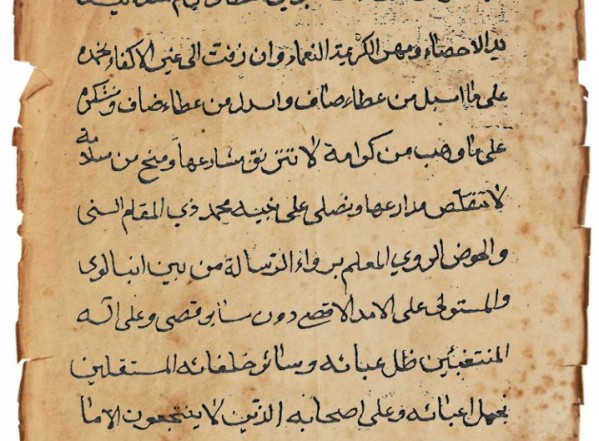 يد الاحصاء ومهن الكرعية النعماء وان زفت الى غير الاكفاء نحمده
على ما اسبل من عطاء ضاف واسدل من عطاء ضاف ونشكره
على ما وهب من كرامة لا تترنق مشارعها ومنح من سلامة
لا تتقلص مدارعها ونصلى على نبيه محمد ذي المقام السنى
والحوض الروي المعلم برواء الرسالة من بين
والمستولى على الامد الاقصى دون سابق وعلى آله
ظل عبائه وسائر خلفائه المستقلين
بحمل اعبائه وعلى اصحابه الذين لا ينتجعون الاما